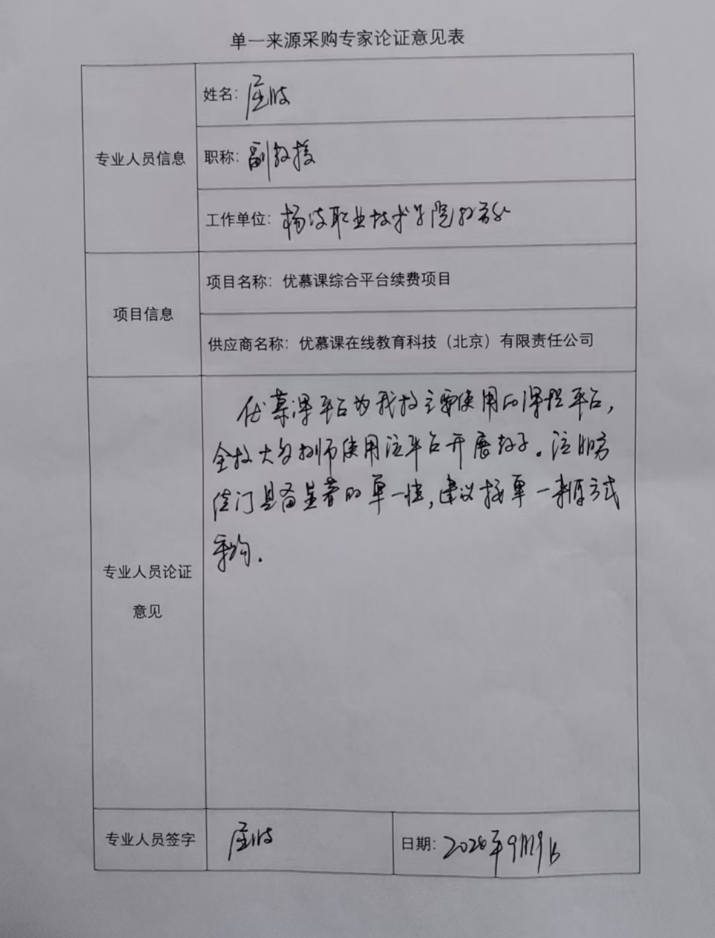 单一来源采购专家论证意见表
专业人员信息
姓名：
职称：副教授
工作单位：杨凌职业技术学院教务处
项目信息
项目名称：优慕课综合平台续费项目
供应商名称：优慕课在线教育科技（北京）有限责任公司
专业人员论证
意见
优慕课平台为我校主要使用的课程平台，
全校大多教师使用该平台开展教学。该服务
具备显著的单一性，建议按单一来源方式
采购。
专业人员签字
日期：